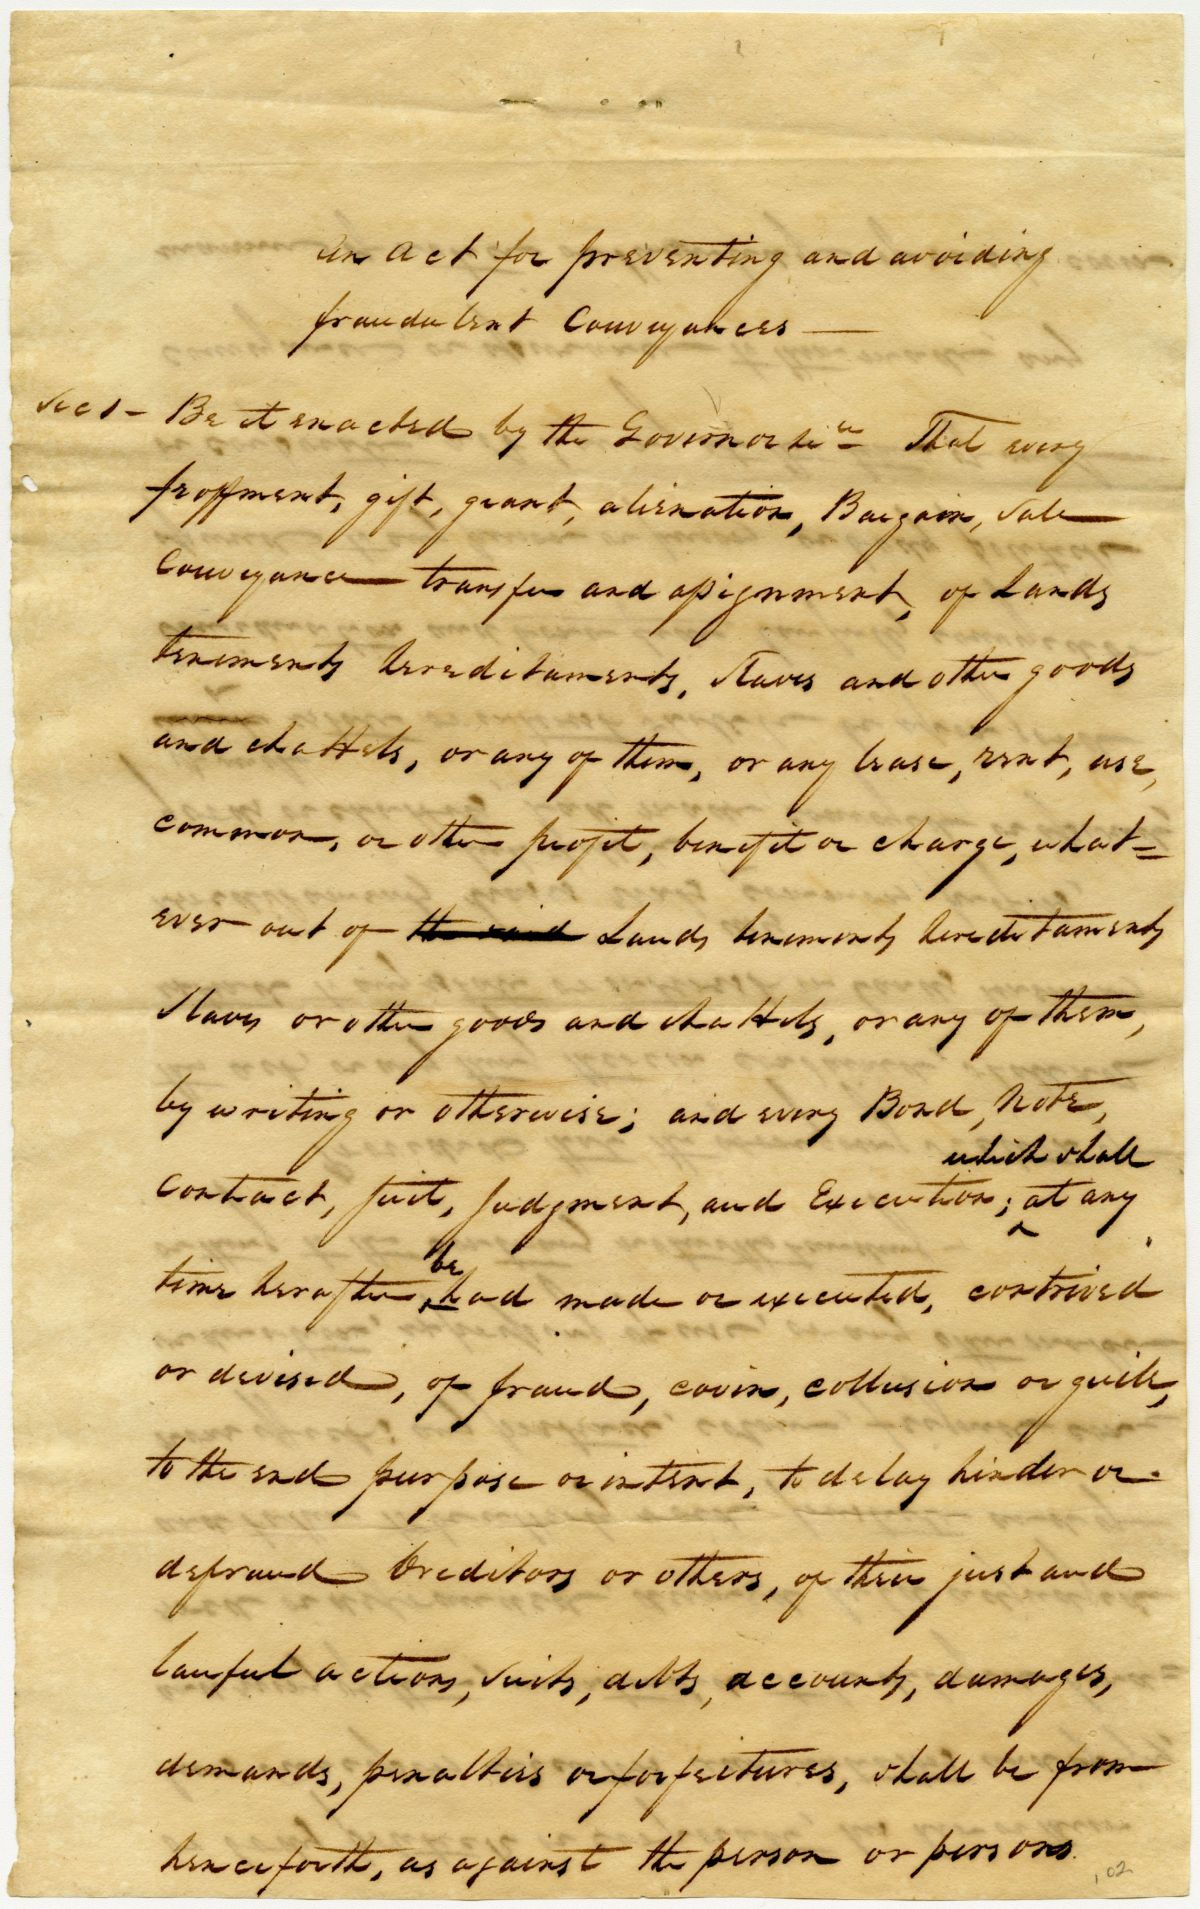 An Act for preventing and avoiding
fraudulent Conveyances —
Sec 1 – Be it enacted by the Governor &c That every
feoffment, gift, grant, alienation, Bargain, Sale
Conveyance transfer and assignment, of Lands
tenements hereditaments, Slaves and other goods
and chattels, or any of them, or any lease, rent, use,
common, or other profit, benefit or charge, what=
ever out of the said Lands tenements hereditaments
Slaves or other goods and chattels, or any of them,
by writing or otherwise; and every Bond, Note,
which shall
contract, suit, Judgment, and Execution; ^ at any
be
time herafter, ^ had made or executed, contrived
or devised, of fraud, covin, collusion or guile,
to the end purpose or intent, to delay hinder or
defraud Creditors or others, of their just and
lawful actions, suits, debts, accounts, damages,
demands, penalties or forfeitures, shall be from
henceforth, as against the person or persons